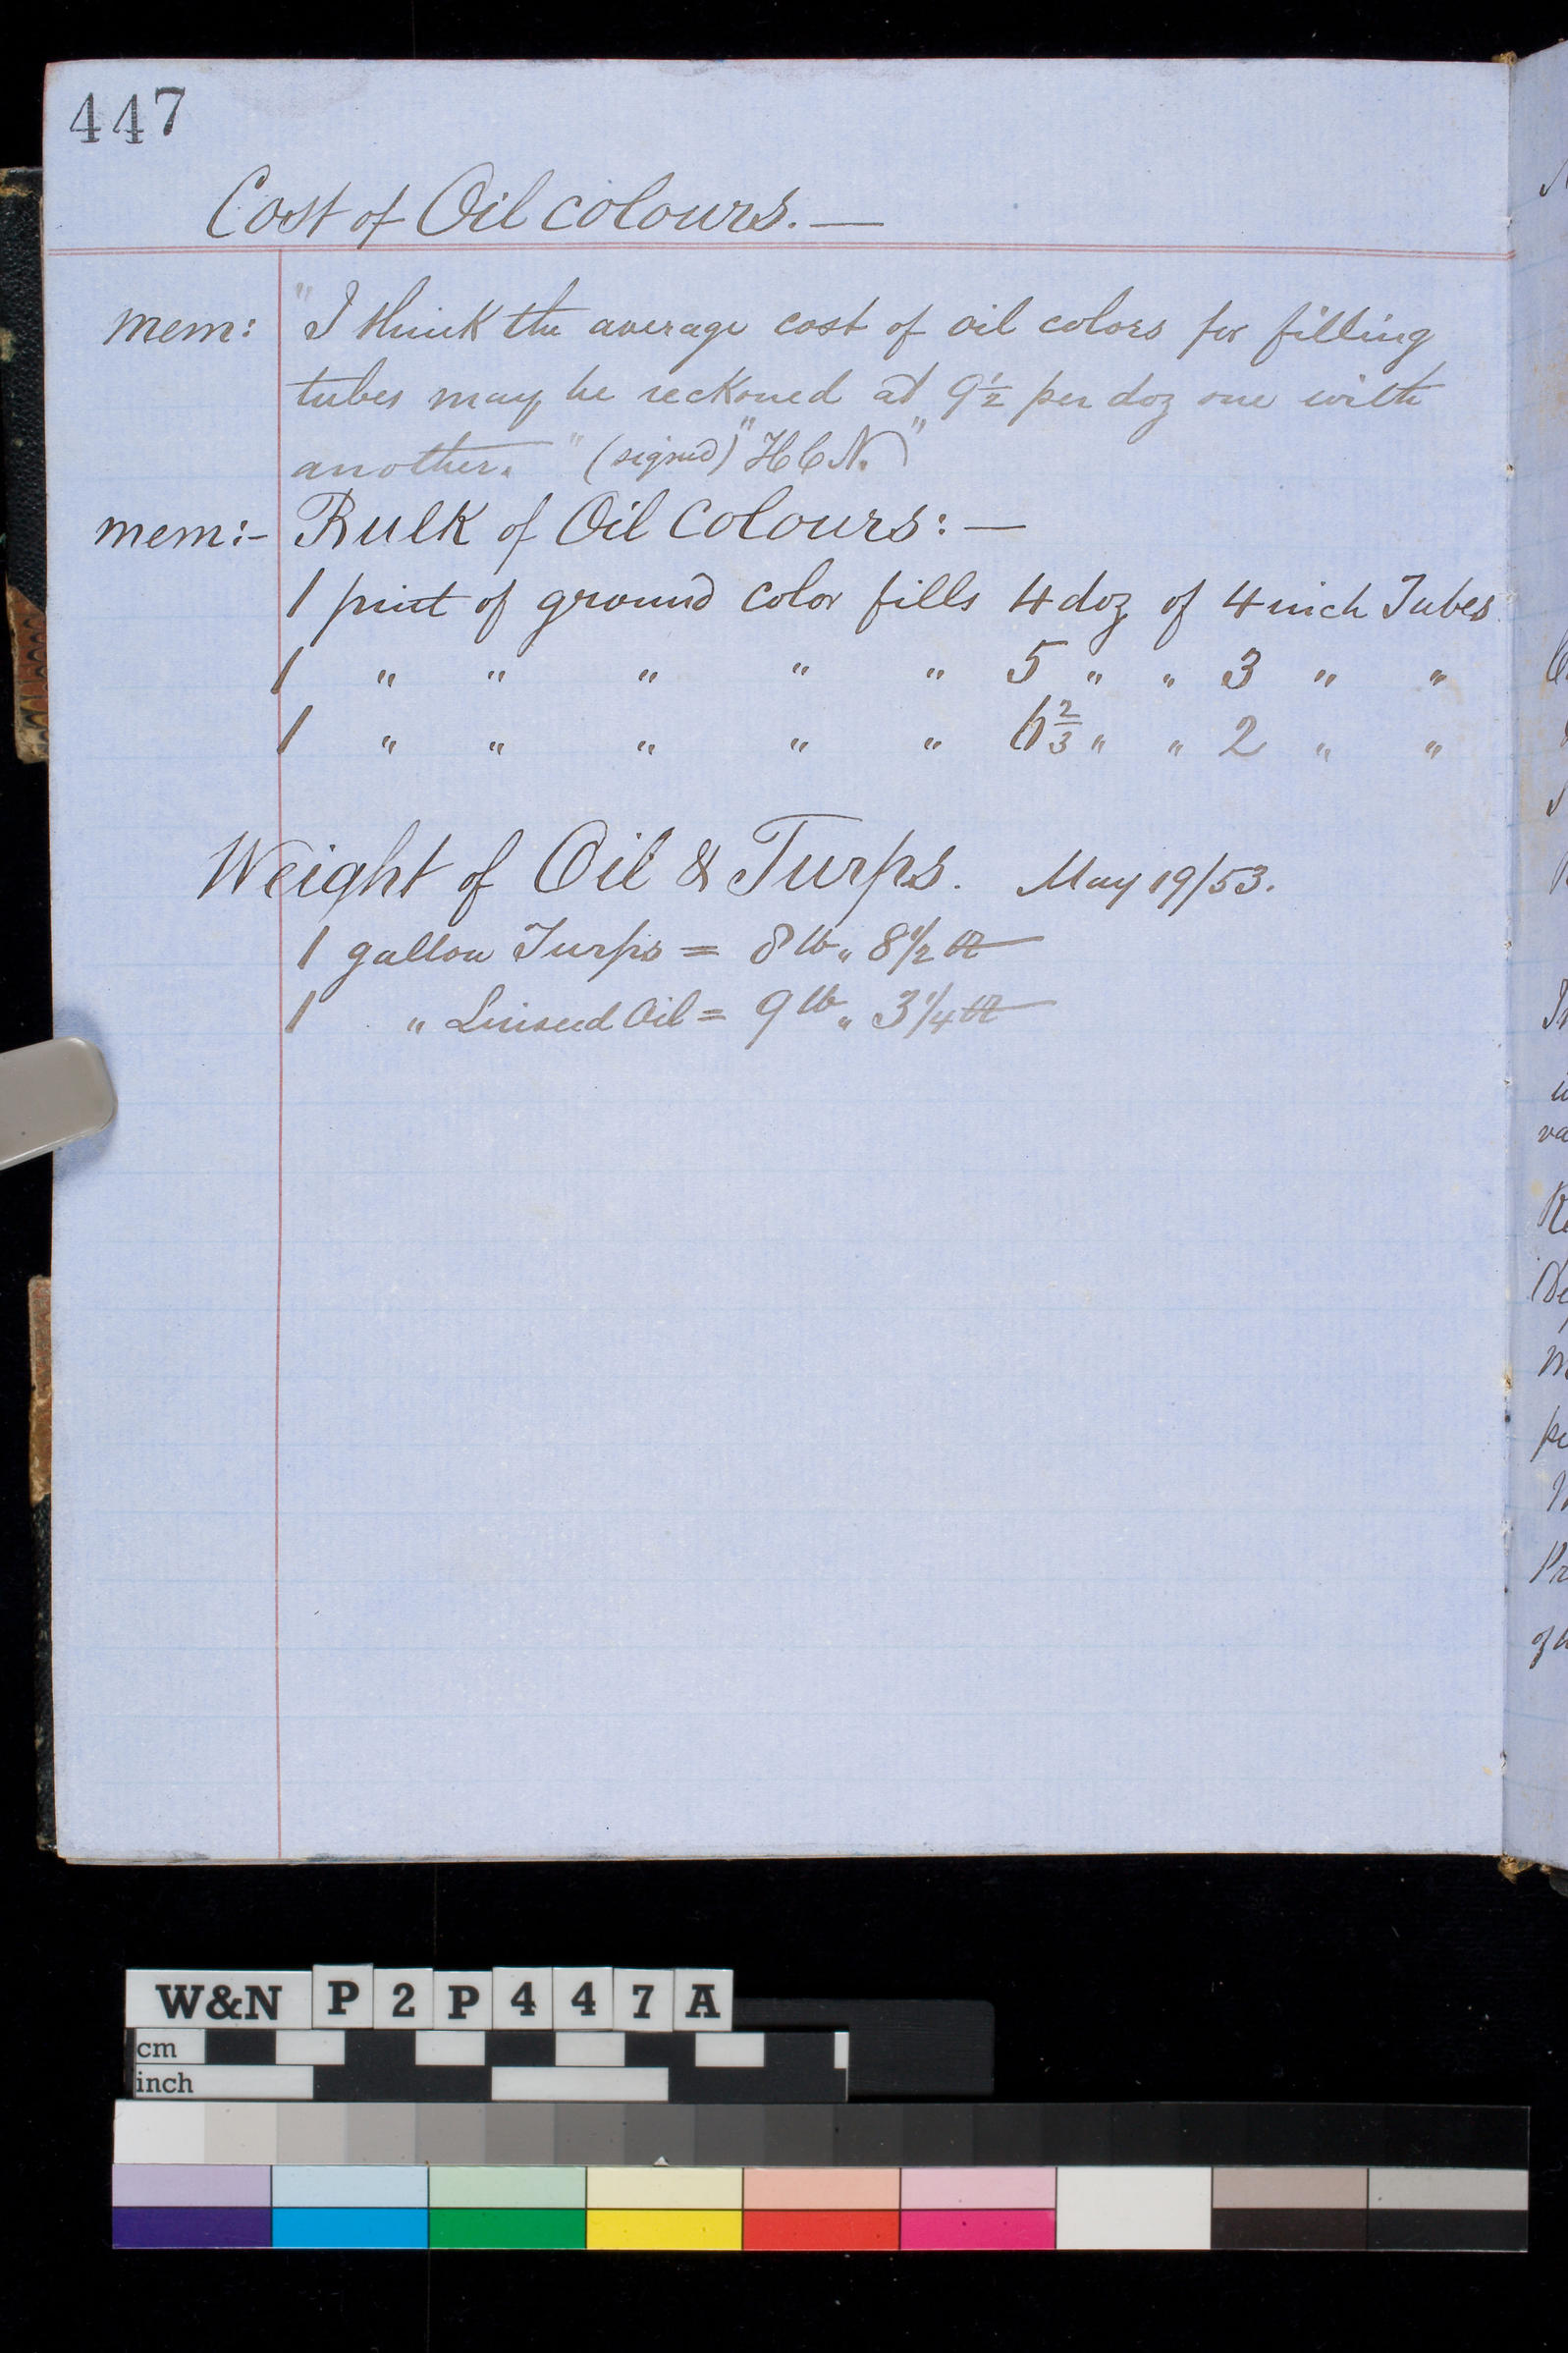 447
Cost of Oil colours. —
mem: "I think the average cost of oil colors for filling
tubes may be reckoned at 9½ per doz one with
another." (signed) "H C N."
mem:- Bulk of Oil Colours: —
1 pint of ground color fills 4 doz of 4 inch Tubes
1 " " " " " 5 " " 3 " "
1 " " " " " 6⅔ " " 2 " "
Weight of Oil & Turps. May 19/53.
1 gallon Turps = 8 lb " 8 1/2 oz
1 " Linseed Oil = 9 lb " 3 1/4 oz
W&N P 2 P 4 4 7 A
cm
inch